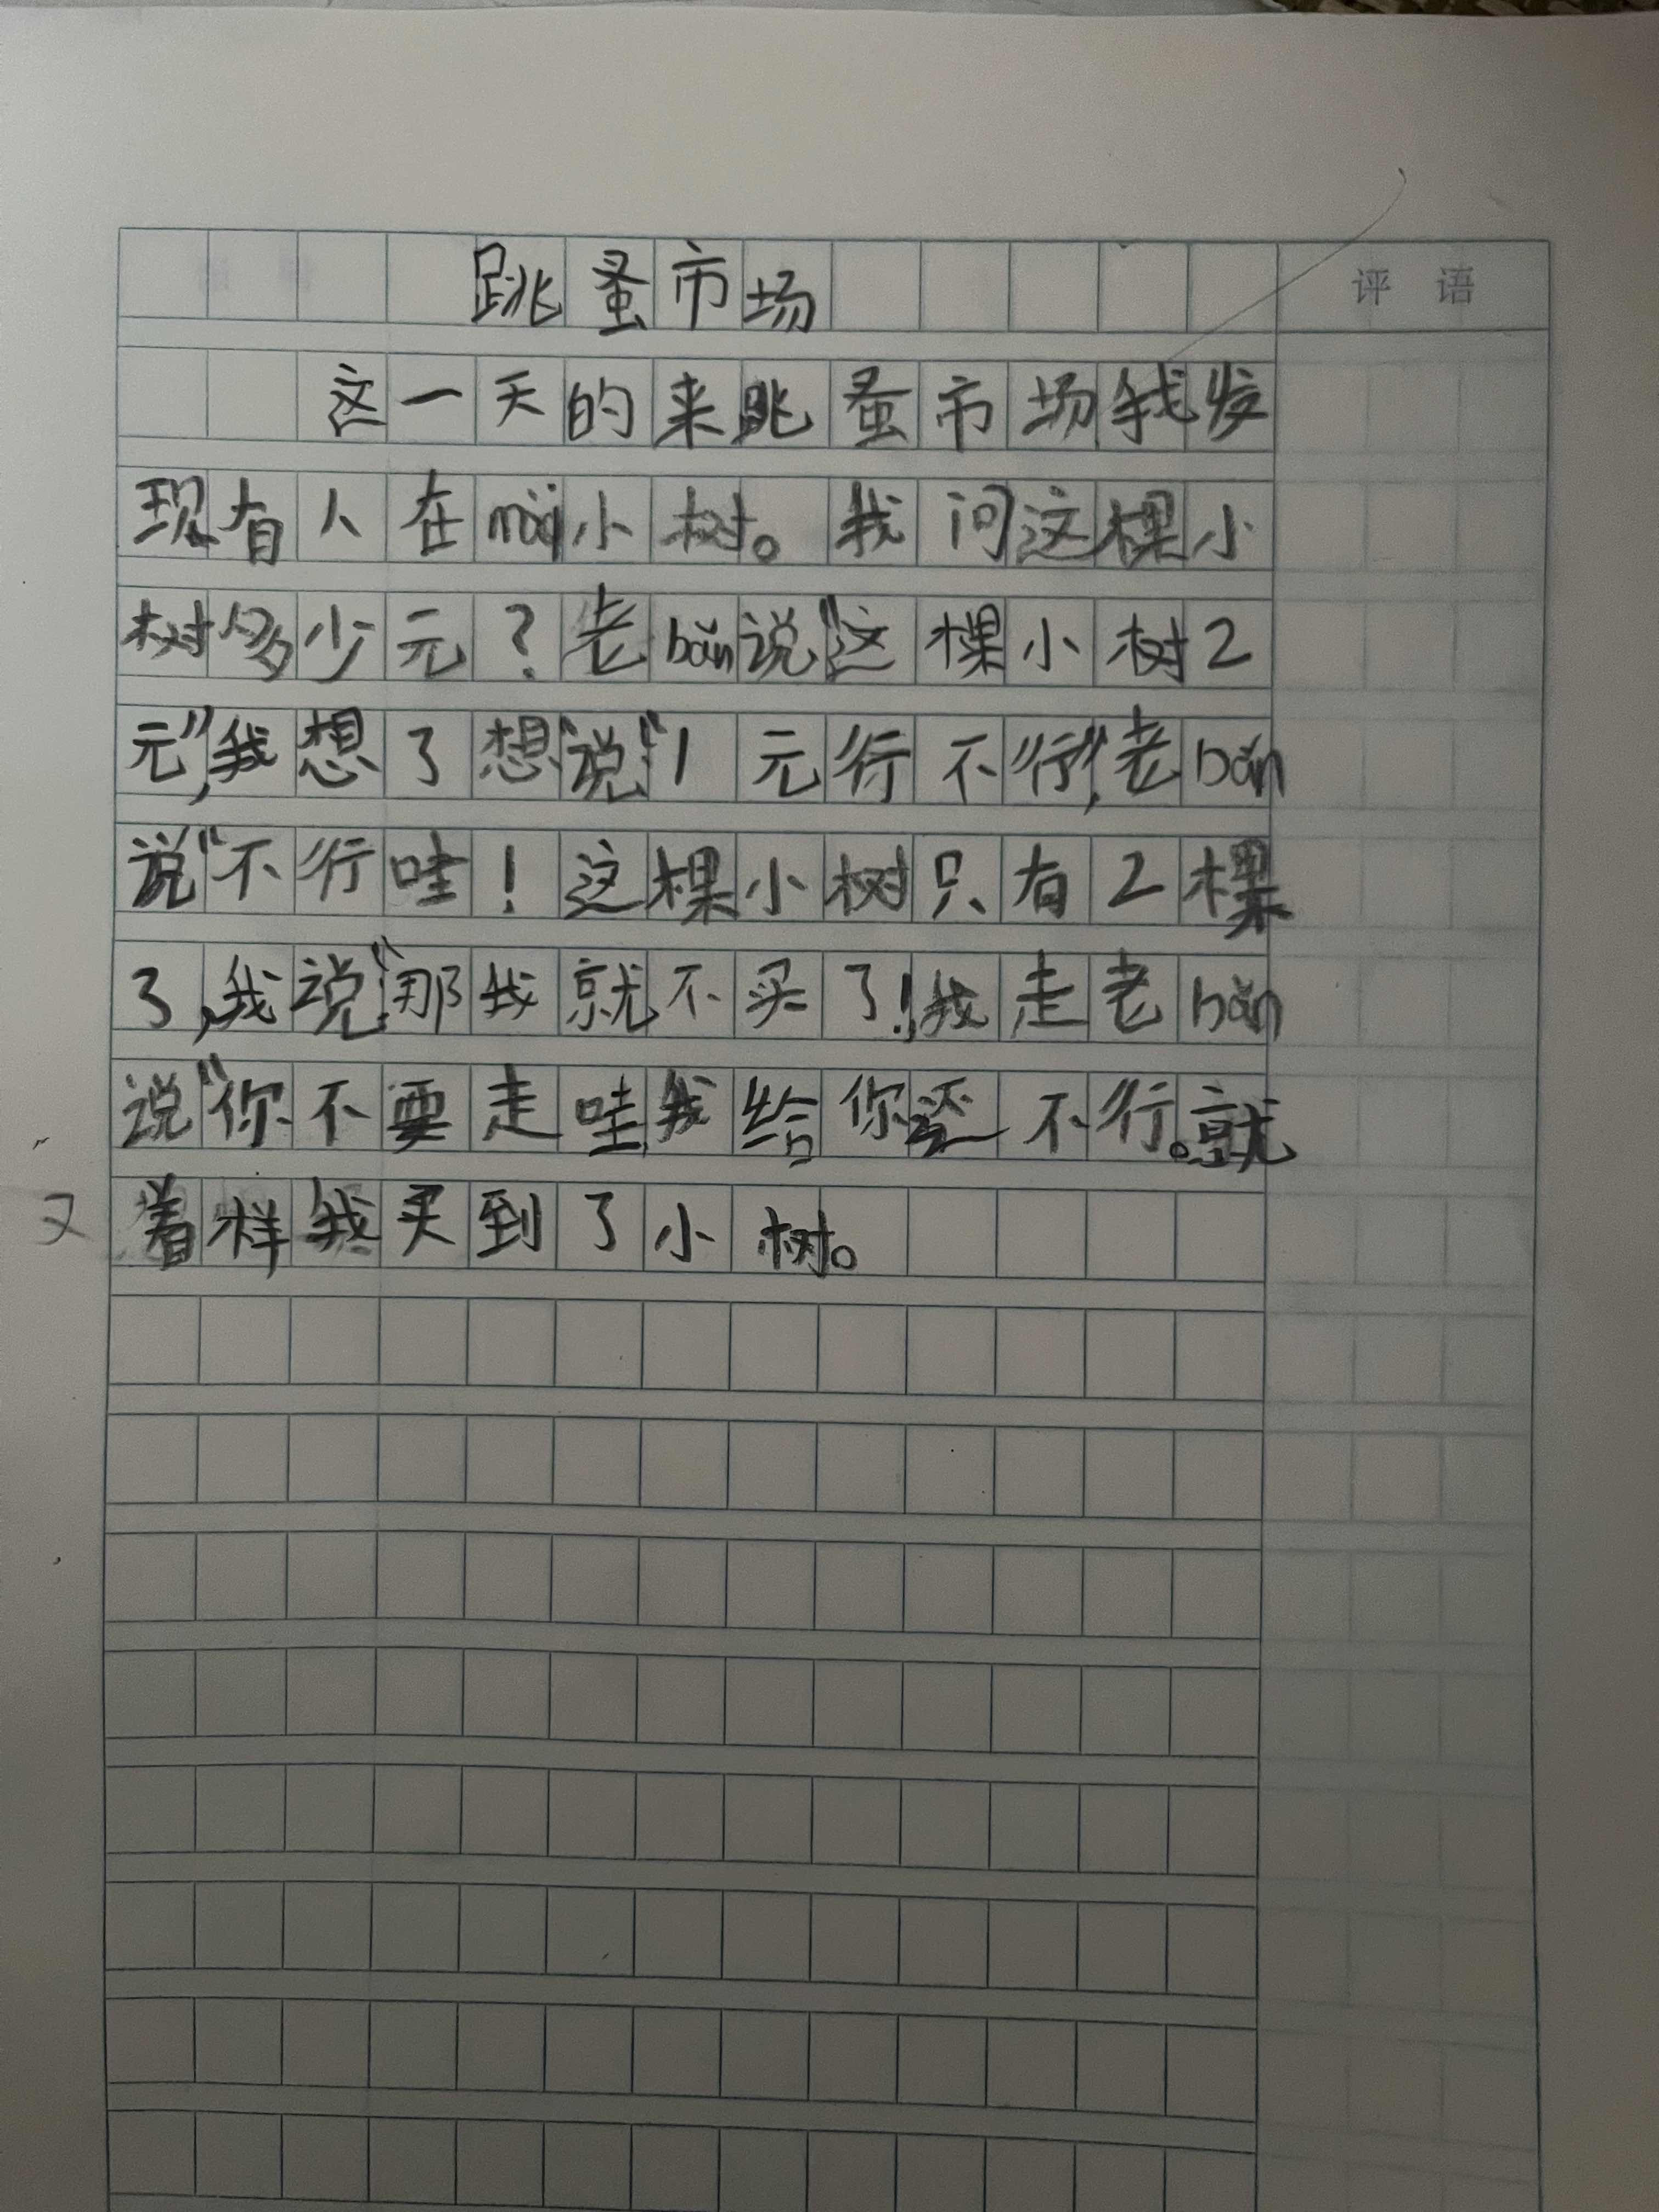 跳蚤市场
评语
这一天的来跳蚤市场我发
现有人在mài小树。我问这棵小
树多少元?老bǎn说“这棵小树2
元”,我想了想“说“1元行不行”,老bǎn
说“不行哇!这棵小树只有2棵
了,我说“那我就不买了!,我走老bǎn
说“你不要走哇,我给你还不行。就
着样我买到了小树。
又